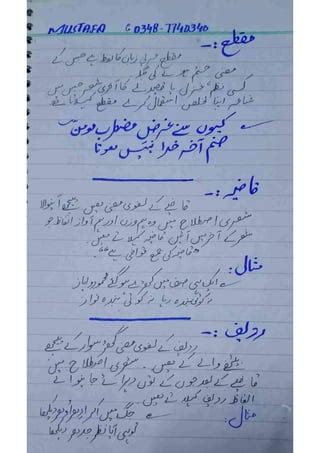 MUSTAFA 0348-7740340
مقطع :-
مقطع عربی زبان کا لفظ ہے جس کے
معنی ختم ہونے کی جگہ
کسی نظم غزل یا قصیدے کا آخری شعر جس میں
شاعر اپنا تخلص استعمال کرے مقطع کہلاتا ہے
کیوں سنے عرض مضطرب مومن
صنم آخر خدا نہیں ہوتا
قافیہ :-
قافیے کے لغوی معنی ہیں پیچھے آنیوالا
شعری اصطلاح میں وہ ہم وزن اور ہم آواز الفاظ جو
شعر کے آخر میں آئیں قافیہ کہلاتے ہیں
قافیہ کی جمع قوافی ہے
مثال :
ایک ہی صف میں کھڑے ہو گئے محمود و ایاز
نہ کوئی بندہ رہا نہ کوئی بندہ نواز
ردیف :-
ردیف کے لغوی معنی گھڑ سوار کے پیچھے
بیٹھنے والے کے ہیں۔ شعری اصطلاح میں
قافیے کے بعد جوں کے توں دہرائے جانے والے
الفاظ ردیف کہلاتے ہیں
مثال : جگ میں آ کر ادھر ادھر دیکھا
تو ہی آیا نظر جدھر دیکھا